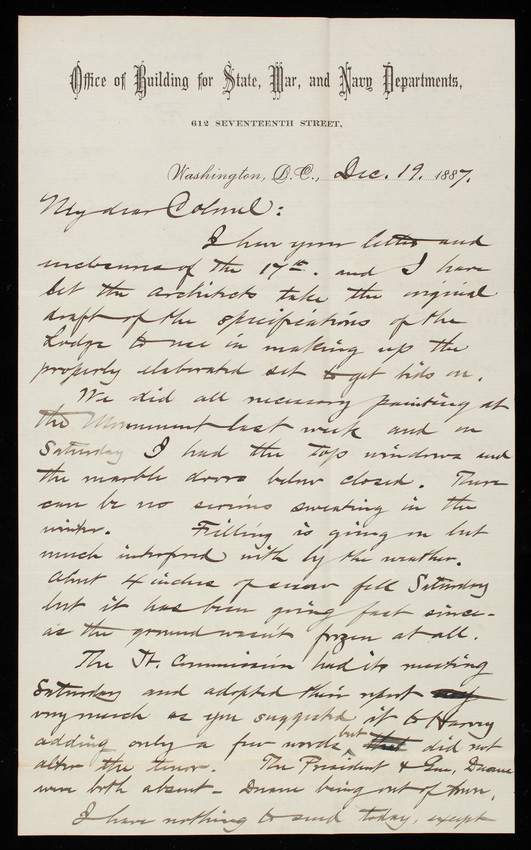 Office of Building for State, War, and Navy Departments,
612 SEVENTEENTH STREET,
Washington, D.C., Dec. 19. 1887.
My dear Colonel:
I have your letter and
inclosures of the 17th. and I have
let the architects take the original
draft of the specifications of the
Lodge to use in making up the
properly elaborated set to get bids on.
We did all necessary painting at
the Monument last week and on
Saturday I had the top windows and
the marble doors below closed. There
can be no serious sweating in the
winter. Filling is going on but
much interfered with by the weather.
About 4 inches of snow fell Saturday
but it has been going fast since-
as the ground wasn't frozen at all.
The Jt. Commission had its meeting
Saturday and adopted their report
very much as you suggested it to Harvey
adding only a few words but did not
alter the tenor. The President & Gen. Duane
were both absent - Duane being out of town.
I have nothing to send today, except